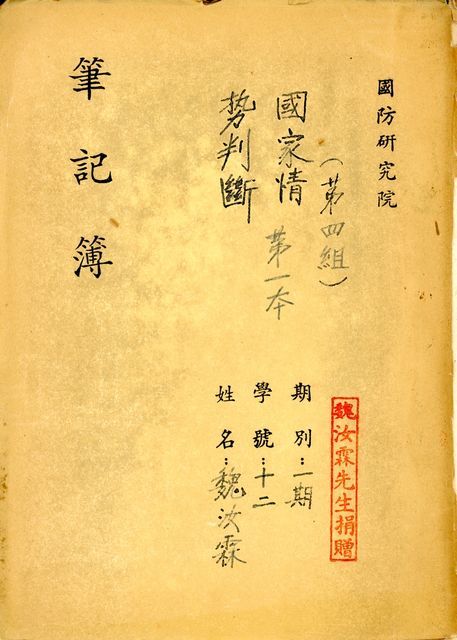 國防研究院
（第四組）
國家情
勢判斷
第一本
筆記簿
期別：一期
學號：十二
姓名：魏汝霖
魏汝霖先生捐贈